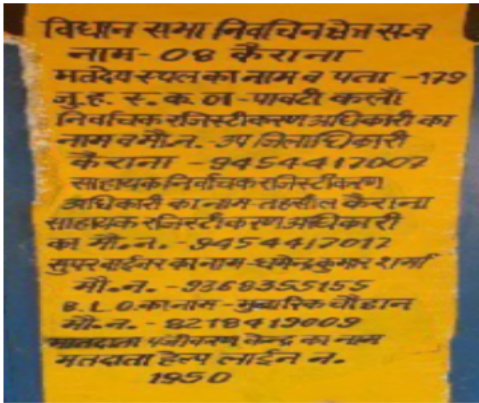 विधान सभा निर्वाचन क्षेत्र स.व
नाम- 08 कैराना
मतदेय स्थल का नाम व पता -179
जु. ह. स्. क. 01 - पावटी कलाँ
निर्वाचक रजिस्टीकरण अधिकारी का
नाम व मो. न. - उप जिलाधिकारी
कैराना - 9454417007
साहायक निर्वाचक रजिस्टीकरण
अधिकारी का नाम- तहसील कैराना
साहायक रजिस्टीकरण अधिकारी
का मो. न. - 9454417017
सुपरवाईजर का नाम - धर्मेन्द्र कुमार शर्मा
मो. न. - 9368355155
B.L.O. का नाम - मुबारिक चौहान
मो. न. - 8218419009
मतदाता पंजीकरण केन्द्र का नाम
मतदाता हेल्प लाईन न.
1950